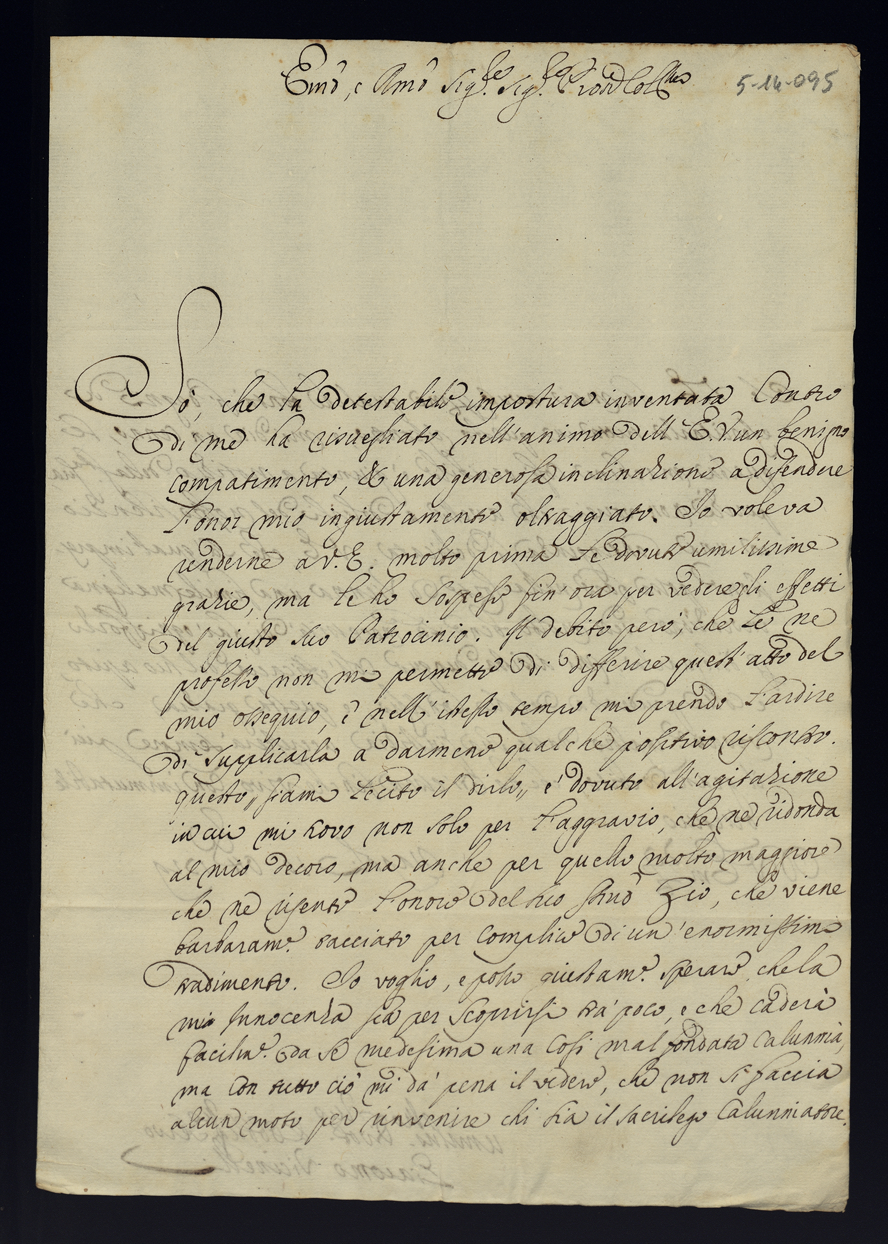 Emo, e Rmo Sigre. Sigre. Pron Colmo
5-14-095
Sò, che la detestabile impostura inventata Contro
di me ha risvegliato nell'animo dell'E.V. un benigno
compatimento, & una generosa inclinazione a difendere
l'onor mio ingiustamente oltraggiato. Io voleva
renderne a V.E. molto prima le dovute umilissime
grazie, ma le ho sospese fin'ora per vedere gli effetti
del giusto suo Patrocinio. Il debito però, che Le ne
professo non mi permette di differire quest'atto del
mio ossequio, e nell'istesso tempo mi prendo l'ardire
di supplicarla a darmene qualche positivo riscontro.
questo,, siami lecito il dirlo,, è dovuto all'agitazione
in cui mi trovo non solo per l'aggravio, che ne ridonda
al mio decoro, ma anche per quello molto maggiore
che ne risente l'onore del mio Zio, che viene
barbaramte. tacciato per complice di un'enormissimo
tradimento. Io voglio, e posso giustamte. sperare, che la
mia Innocenza sia per scoprirsi trà poco, e che caderà
facilmte. da se medesima una così mal fondata Calunnia,
ma con tutto ciò mi dà pena il vedere, che non si faccia
alcun moto per rinvenire chi sia il sacrilego Calunniatore.